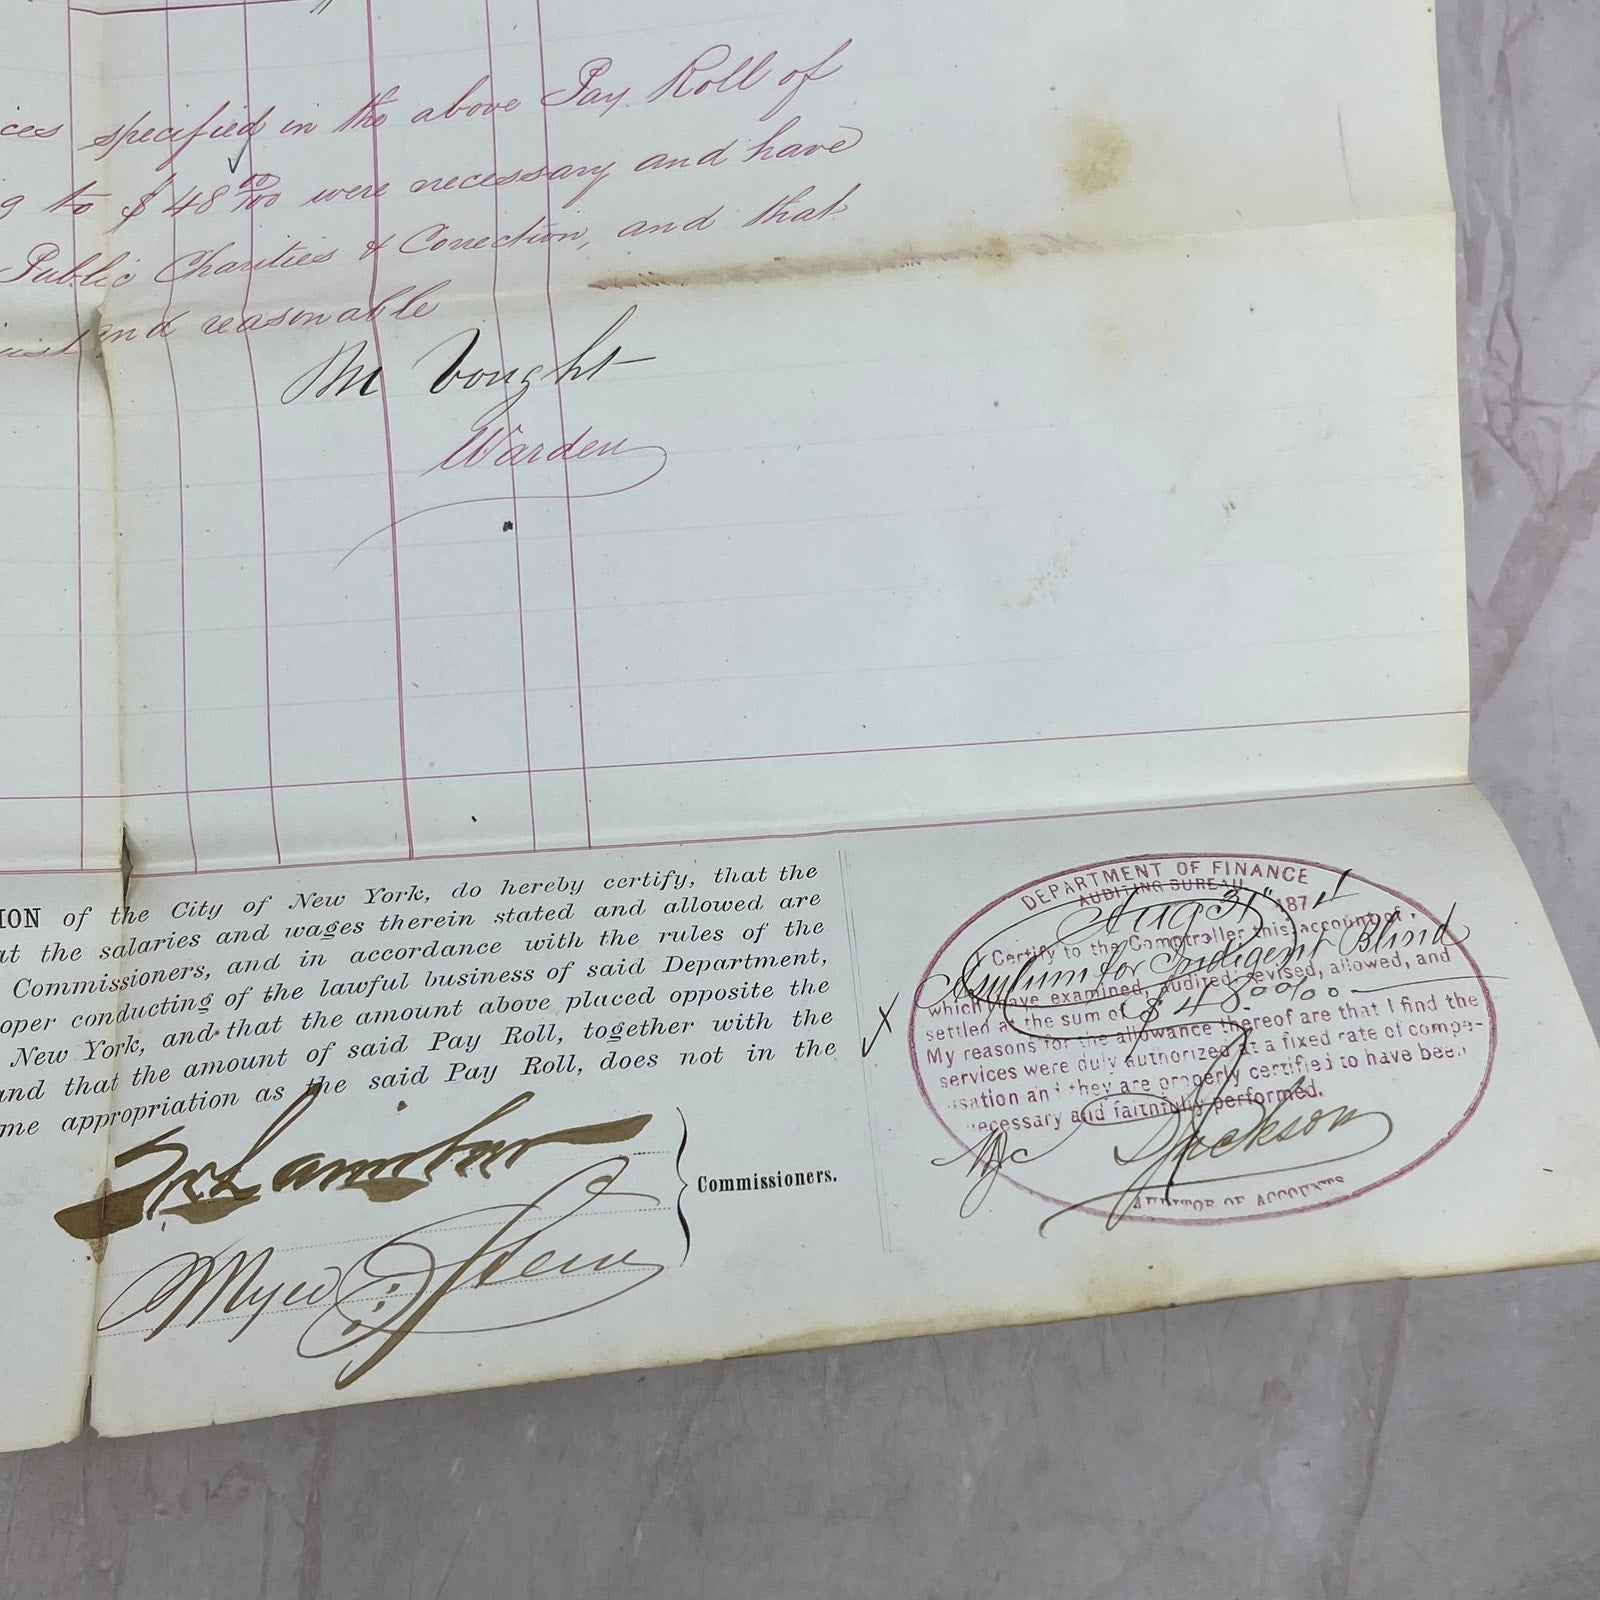 ces specified in the above Pay Roll of
g to $48 00/100 were necessary and have
Public Charities & Correction, and that
just and reasonable
M Vought
Warden
ION of the City of New York, do hereby certify, that the
at the salaries and wages therein stated and allowed are
Commissioners, and in accordance with the rules of the
oper conducting of the lawful business of said Department,
New York, and that the amount above placed opposite the
and that the amount of said Pay Roll, together with the
me appropriation as the said Pay Roll, does not in the
Commissioners.
Myer Stern
DEPARTMENT OF FINANCE
AUDITING BUREAU
Aug 31st 1874
I Certify to the Comptroller this account of
Asylum for Indigent Blind
which I have examined, audited, revised, allowed, and
settled at the sum of $48 00/100
My reasons for the allowance thereof are that I find the
services were duly authorized at a fixed rate of compe-
nsation and they are properly certified to have been
necessary and faithfully performed.
Jackson
AUDITOR OF ACCOUNTS